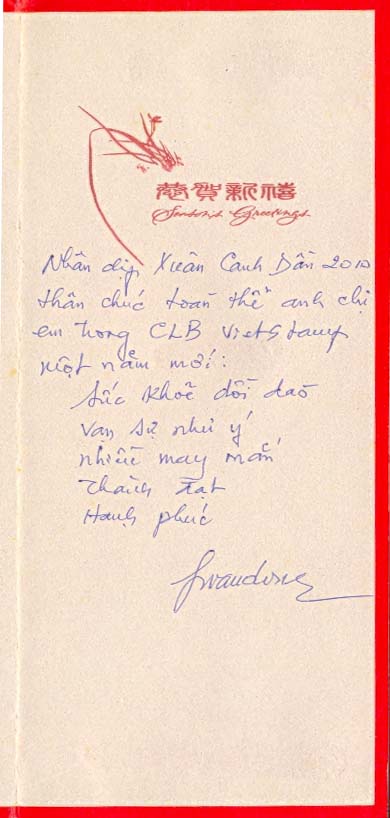 恭賀新禧
Season's Greetings
Nhân dịp Xuân Canh Dần 2010
thân chúc toàn thể anh chị
em trong CLB Vietstamp
một năm mới:
Sức khoẻ dồi dào
Vạn sự như ý
nhiều may mắn
Thành đạt
Hạnh phúc